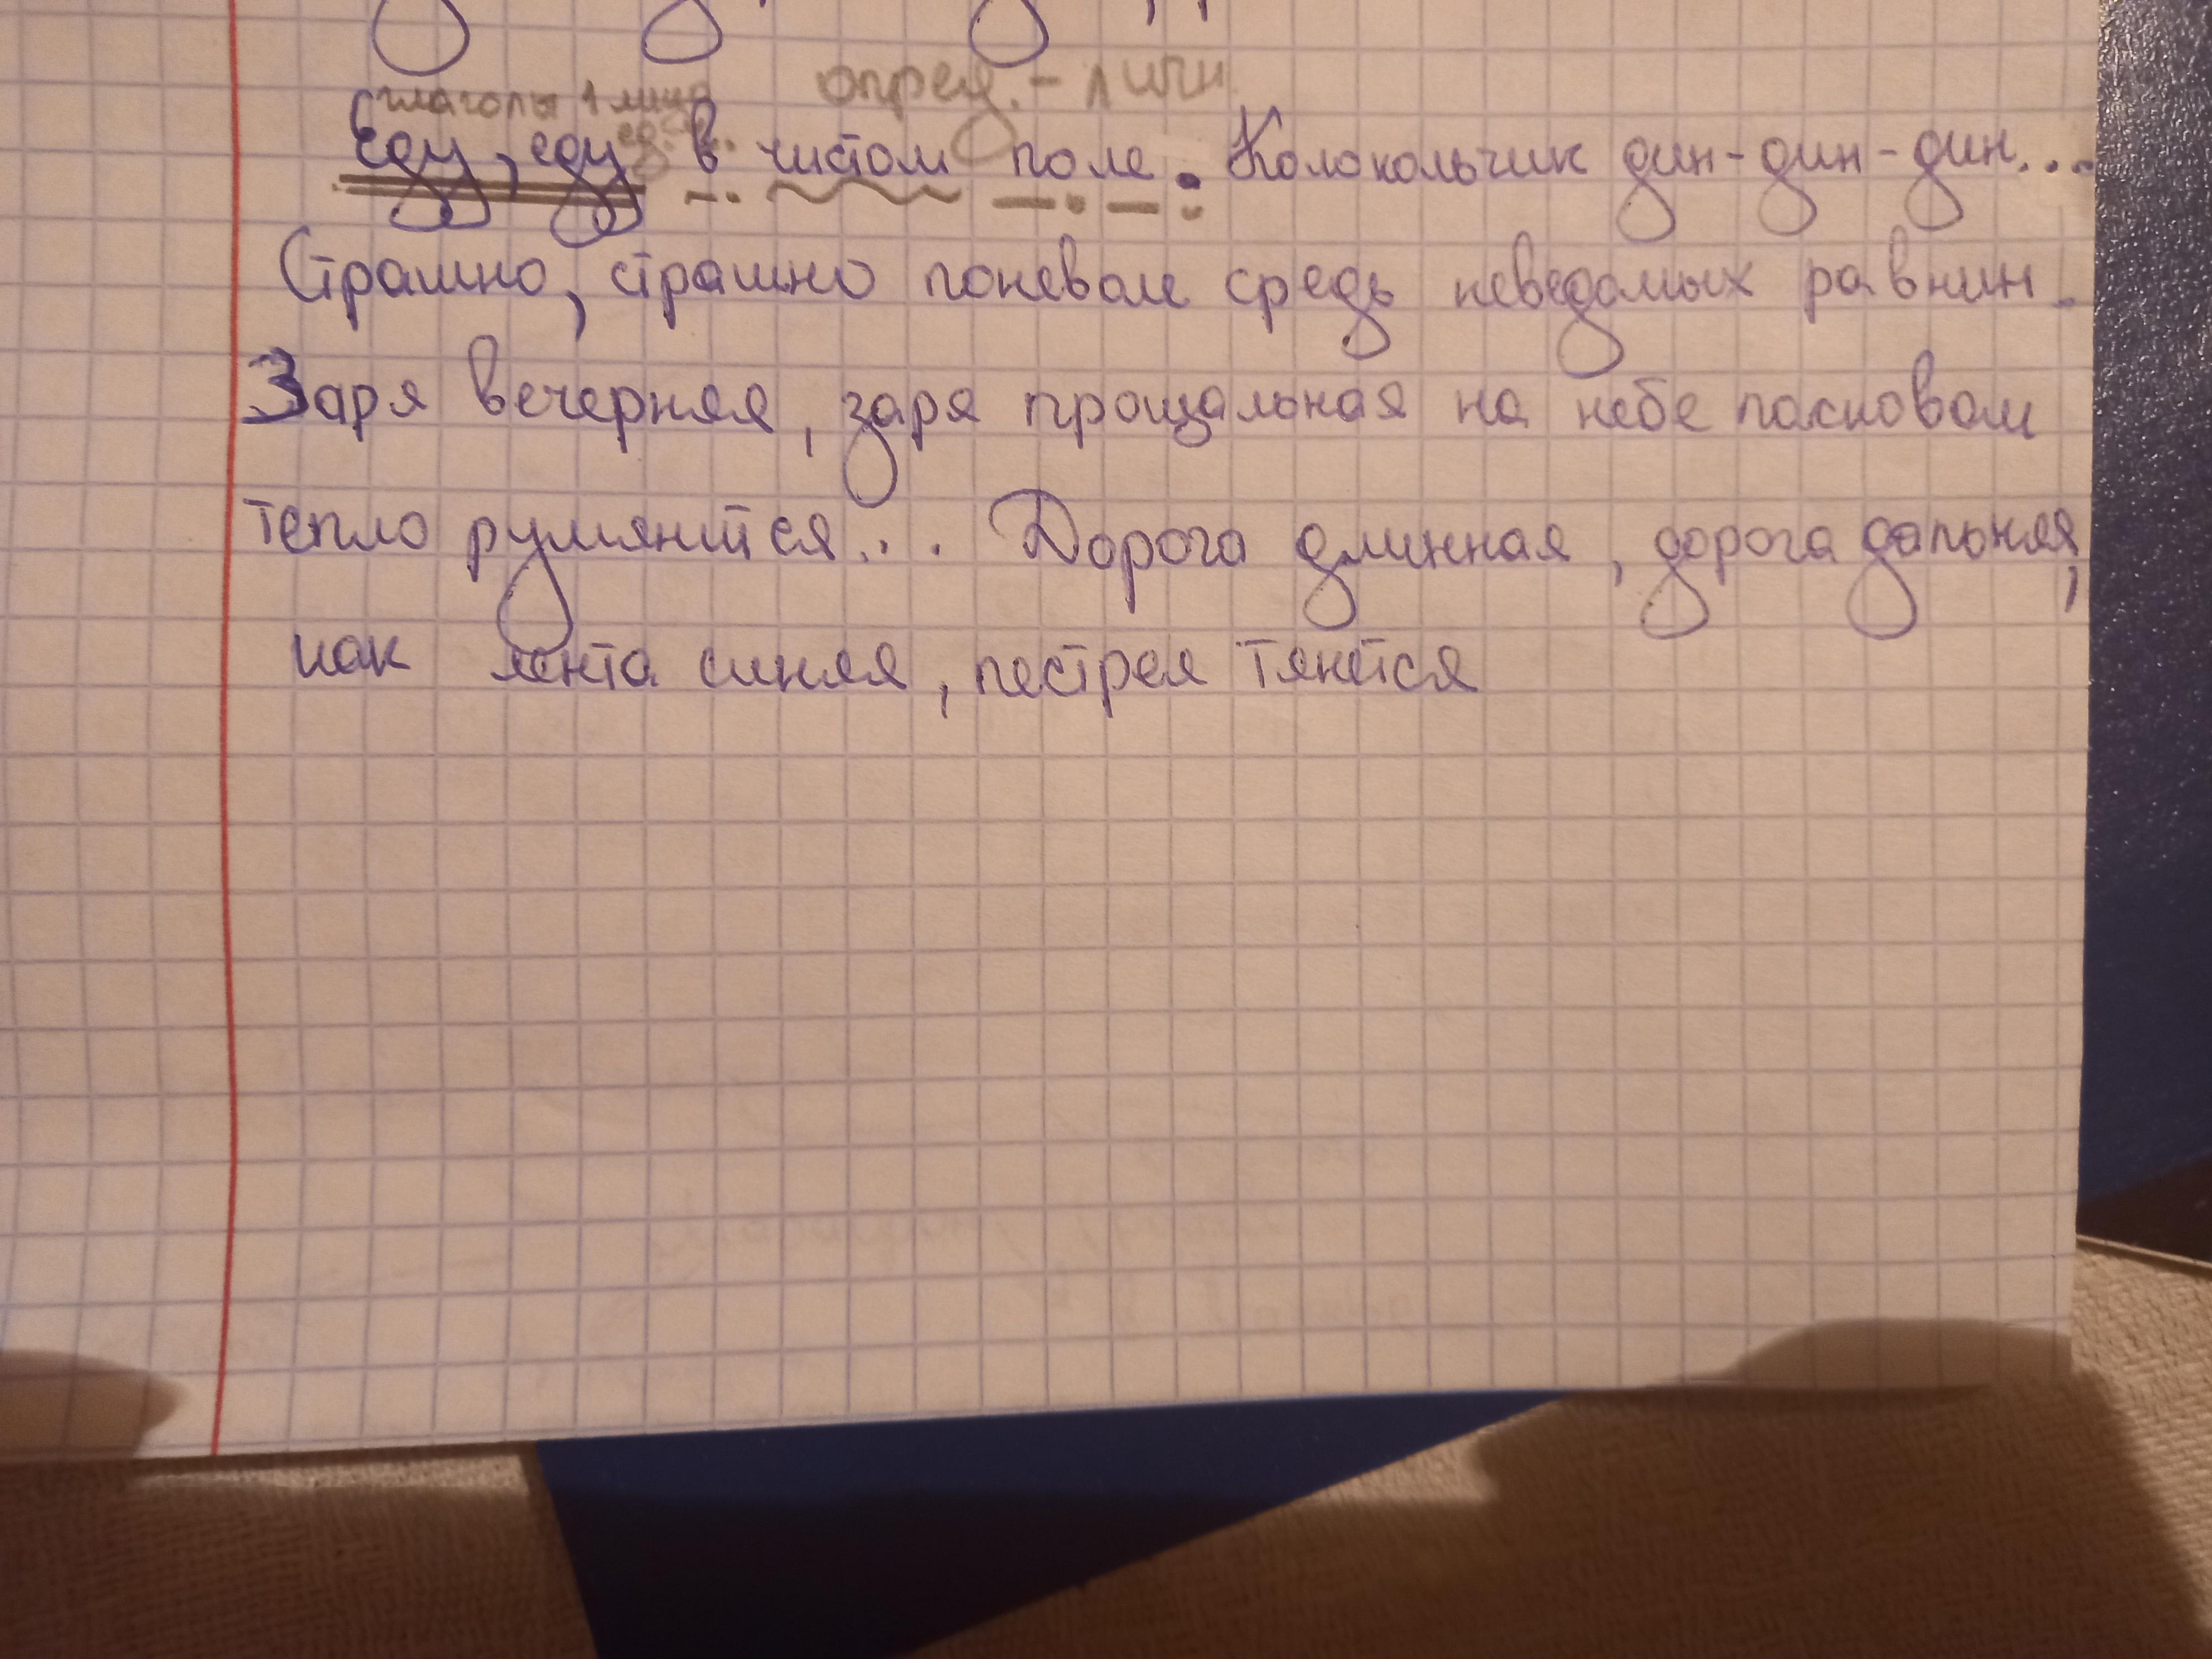 глаголы 1 лица опред. - личн.
ед. ч.
Еду, еду в чистом поле. Колокольчик дин-дин-дин...
Страшно, страшно поневоле средь неведомых равнин.
Заря вечерняя, заря прощальная на небе ласковом
тепло румянится... Дорога длинная, дорога дальняя,
как лента синяя, пестрея тянется